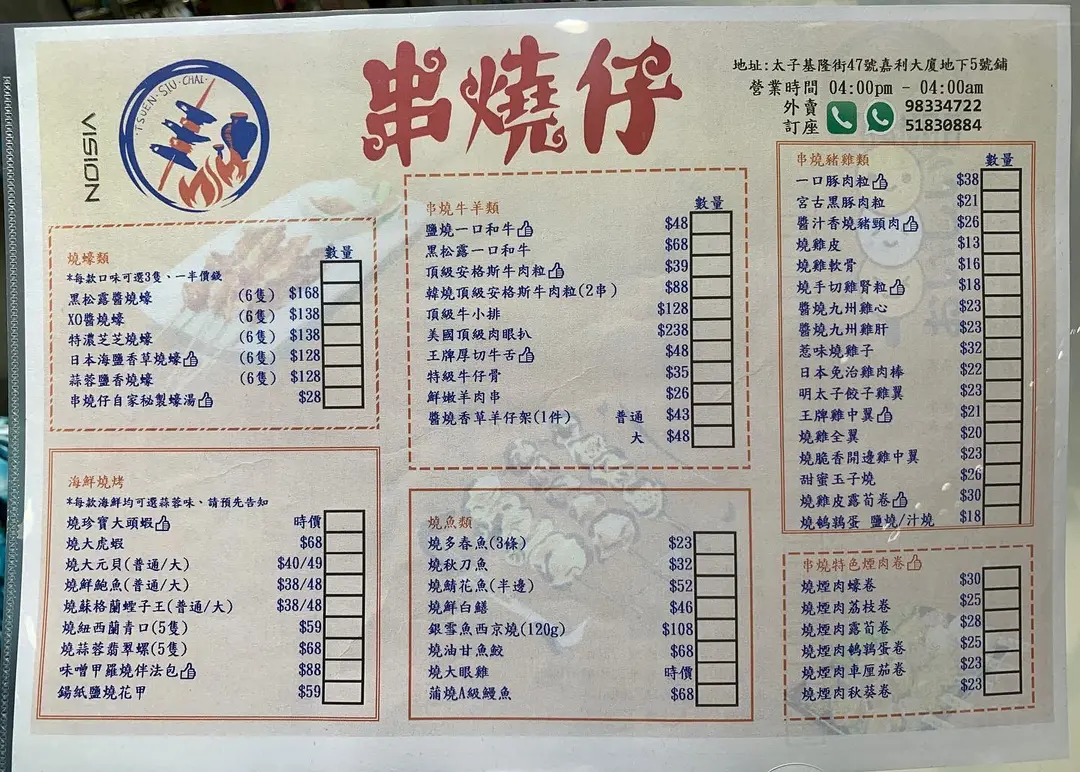 TSUEN·SIU·CHAI·
VISION
串燒仔
地址:太子基隆街47號嘉利大廈地下5號鋪
營業時間 04:00pm - 04:00am
外賣 98334722
訂座 51830884
燒蠔類 數量
*每款口味可選3隻、一半價錢
黑松露醬燒蠔 (6隻) $168
XO醬燒蠔 (6隻) $138
特濃芝芝燒蠔 (6隻) $138
日本海鹽香草燒蠔 (6隻) $128
蒜蓉鹽香燒蠔 (6隻) $128
串燒仔自家秘製蠔湯 $28
海鮮燒烤
*每款海鮮均可選蒜蓉味、請預先告知
燒珍寶大頭蝦 時價
燒大虎蝦 $68
燒大元貝(普通/大) $40/49
燒鮮鮑魚(普通/大) $38/48
燒蘇格蘭蟶子王(普通/大) $38/48
燒紐西蘭青口(5隻) $59
燒蒜蓉翡翠螺(5隻) $68
味噌甲羅燒伴法包 $88
錫紙鹽燒花甲 $59
串燒牛羊類 數量
鹽燒一口和牛 $48
黑松露一口和牛 $68
頂級安格斯牛肉粒 $39
韓燒頂級安格斯牛肉粒(2串) $88
頂級牛小排 $128
美國頂級肉眼扒 $238
王牌厚切牛舌 $48
特級牛仔骨 $35
鮮嫩羊肉串 $26
醬燒香草羊仔架(1件) 普通 $43
大 $48
燒魚類
燒多春魚(3條) $23
燒秋刀魚 $32
燒鯖花魚(半邊) $52
燒鮮白鱔 $46
銀雪魚西京燒(120g) $108
燒油甘魚鮫 $68
燒大眼雞 時價
蒲燒A級鰻魚 $68
串燒豬雞類 數量
一口豚肉粒 $38
宮古黑豚肉粒 $21
醬汁香燒豬頸肉 $26
燒雞皮 $13
燒雞軟骨 $16
燒手切雞腎粒 $18
醬燒九州雞心 $23
醬燒九州雞肝 $23
惹味燒雞子 $32
日本免治雞肉棒 $22
明太子餃子雞翼 $23
王牌雞中翼 $21
燒雞全翼 $20
燒脆香開邊雞中翼 $23
甜蜜玉子燒 $26
燒雞皮露荀卷 $30
燒鵪鶉蛋 鹽燒/汁燒 $18
串燒特色煙肉卷
燒煙肉蠔卷 $30
燒煙肉荔枝卷 $25
燒煙肉露荀卷 $28
燒煙肉鵪鶉蛋卷 $25
燒煙肉車厘茄卷 $23
燒煙肉秋葵卷 $23